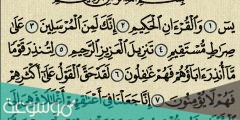 يسٓ ١ وَٱلْقُرْءَانِ ٱلْحَكِيمِ ٢ إِنَّكَ لَمِنَ ٱلْمُرْسَلِينَ ٣ عَلَىٰ
صِرَٰطٍ مُّسْتَقِيمٍ ٤ تَنزِيلَ ٱلْعَزِيزِ ٱلرَّحِيمِ ٥ لِتُنذِرَ قَوْمًا
مَّآ أُنذِرَ ءَابَآؤُهُمْ فَهُمْ غَٰفِلُونَ ٦ لَقَدْ حَقَّ ٱلْقَوْلُ عَلَىٰٓ أَكْثَرِهِمْ
فَهُمْ لَا يُؤْمِنُونَ ٧ إِنَّا جَعَلْنَا فِىٓ أَعْنَٰقِهِمْ أَغْلَٰلًا فَهِىَ
موسوعة